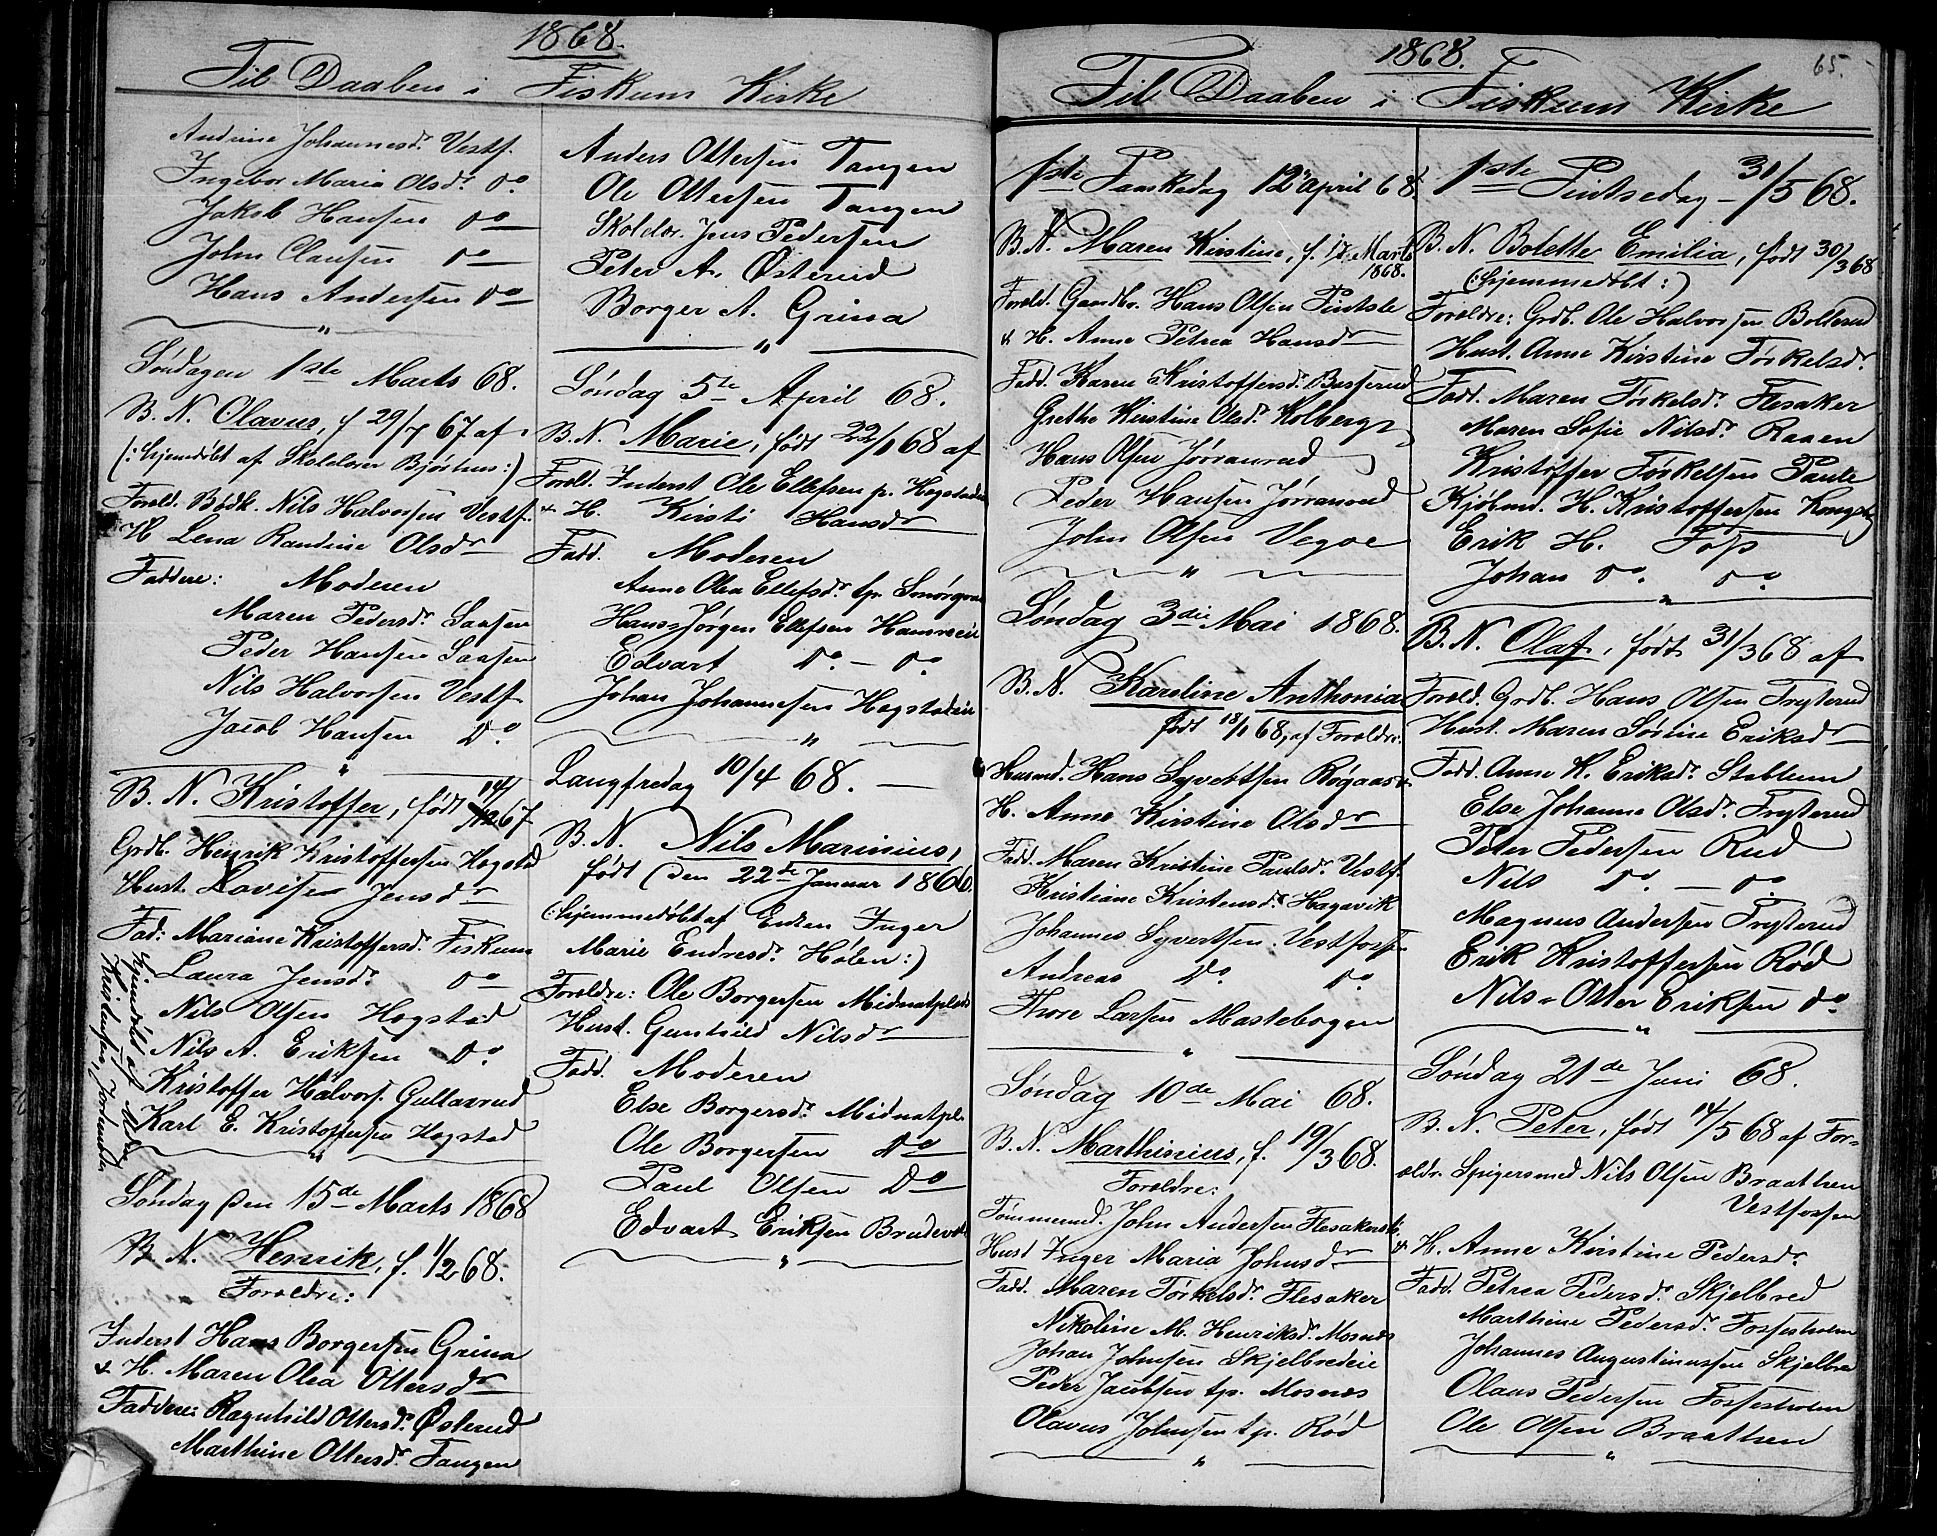 1868.
Til Daaben i Fiskum Kirke
Andrine Johannesd. Vestf.
Ingebor Maria Olsd. do.
Jakob Hansen do
John Clausen do
Hans Andersen do
"
Søndagen 1ste Marts 68.
B. N. Olavus, f 29/7 67 af
(: Hjemdøbt af Skolelærer Bjørhus :)
Foreld. Bødk. Nils Halvorsen Vestf.
& H Lena Randine Olsdr
Faddere: Moderen
Maren Pedersd. Saasen
Peder Hansen Saasen
Nils Halvorsen Vestf
Jacob Hansen Do.
"
B. N. Kristoffer, født 14/12 67
Grdb. Henrik Kristoffersen Hogstad
Hust. Lovise Jensdr
Fad: Mariane Kristoffersd. Fiskum
Laura Jensd. do
Nils Olsen Hogstad
Nils A. Eriksen Do.
Kristoffer Halvors. Gullaxrud
Karl E. Kristoffersen Hogstad
Hjemdøbt af Mdm
Kristensen, Jordmoder
"
Søndag den 15de Marts 1868
B. N. Henrik, f. 1/2 68.
Foreldre:
Inderst Hans Borgersen Grina
& H. Maren Olea Ottersdr
Faddere: Ragnhild Ottersd. Østerud
Marthine Ottersd. Tangen
Anders Ottersen Tangen
Ole Ottersen Tangen
Skolelr. Jens Pedersen
Peter A. Østerud
Borger A. Grina
"
Søndag 5te April 68.
B. N. Marie, født 22/1 68 af
Foreld. Inderst Ole Ellefsen p. Hogstadeie
& H. Kirsti Hansdr
Fadd. Moderen
Anne Olea Ellefsd. tp.
Hans Jørgen Ellefsen
Edvart Do. — do.
Johan Johannesen Hogstadeie
"
Langfredag 10/4 68. —
B. N. Nils Marinius,
født (den 22de Januar 1866.
(: Hjemmedøbt af Enken Inger
Marie Endresd. Holen :)
Foreldre: Ole Borgersen Midnatplads
Hust. Gunhild Nilsdr
Fadd. Moderen
Else Borgersd. Midnatpl.
Ole Borgersen Do
Paul Olsen Do
Edvart Eriksen
"
1868.
65.
Til Daaben i Fiskum Kirke
1ste Paaskedag 12. April 68.
B. N. Maren Kirstine, f. 17. Marts
1868.
Foreld. Gaardbr. Hans Olsen Pintsle
& H. Anne Petrea Hansdr
Fadd. Karen Kristoffersd. Besserud
Grethe Kirstine Olsd. Kolberg
Hans Olsen Jørranrud
Peder Hansen Jørranrud
John Olsen Vegoe
"
Søndag 3die Mai 1868.
B. N. Karoline Anthonia
født 18/1 68, af Foreldre:
Husmd. Hans Syvertsen
H. Anne Kirstine Olsdr
Fadd. Maren Kristine Paulsd. Vestf.
Kristiane Kristensd. Hagavik
Johannes Syvertsen Vestfossen
Andreas Do. do.
Thore Larsen Mastebogen
"
Søndag 10de Mai 68.
B. N. Marthinius, f. 19/3 68.
Foreldre:
Tømmermd. John Andersen Flesakereie
Hust Inger Maria Johnsdr
Fadd. Maren Torkelsd. Flesaker
Nikoline M. Henriksd. Mosnæs
Johan Johnsen Skjelbredeie
Peder Jacobsen tp. Mosnæs
Olavus Johnsen tp. Rød
"
1ste Pintsedag — 31/5 68.
B. N. Bolette Emilia, født 30/3 68
(: Hjemmedøbt :)
Foreldre: Grdb. Ole Halvorsen Bollerud
Hust. Anne Kirstine Torkelsdr
Fadd. Maren Torkelsd. Flesaker
Maren Sofie Nilsd. Raaen
Kristoffer Torkelsen Paule
Kjøbmd. H. Kristoffersen Kongsbg
Erik H. Foss
Johan do. do.
"
B. N. Olaf, født 31/3 68 af
Foreld. Grdb. Hans Olsen Frygterud
Hust. Maren Sørine Eriksdr
Fadd. Anne K. Eriksd. Stablum
Else Johanne Olsd. Frygterud
Peter Pedersen Rud
Nils Do. — do.
Magnus Andersen Frygterud
Erik Kristoffersen Rød
Nils Otter Eriksen do.
"
Søndag 21de Juni 68.
B. N. Peter, født 14/5 68 af For-
eldr. Spigersmed Nils Olsen Braathen
Vestfossen
& H. Anne Kirstine Pedersdr.
Fadd. Petrea Pedersd. Skjelbred
Marthine Pedersd. Fossesholm
Johannes Augustinussen Skjelbre
Olaus Pedersen Fossesholm
Ole Olsen Braathen
"